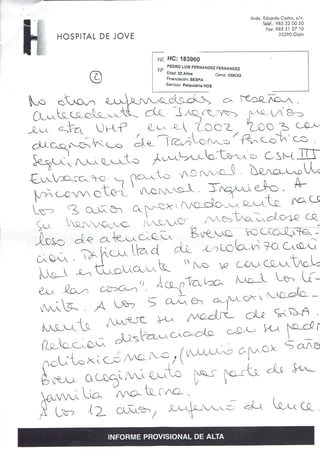 HOSPITAL DE JOVE
Avda. Eduardo Castro, s/n.
Telf.: 985 32 00 50
Fax: 985 31 57 10
33290 Gijón
HC: 183960
PEDRO LUIS FERNANDEZ FERNANDEZ
Edad: 22 Años
Financiación: SESPA
Servicio: Psiquiatria HOS
2
No otras enfermedades a reseñar.
Antecedentes de Ingresos previos
en esta UHP en el 2002, 2003 con
diagnóstico de Trastorno Psicótico.
Seguimiento Ambulatorio CSM III
Embarazo y parto normal. Desarrollo
psicomotor normal. Inquieto. A
los 3 años aproximadamente nace
su hermano menor mostrándose ce
loso de atención. Buena socializa-
ción. Dificultad de escolarización
Mal estudiante "no se concentraba
en las cosas". Aceptaba mal los lí-
mites. A los 5 años aproximada-
mente muere su madre de SIDA.
Relación distanciada con su padre
politoxicómano, (murió aprox 5 años
Buen acogimiento por parte de su
familia materna.
A los 12 años, enfermó de
INFORME PROVISIONAL DE ALTA